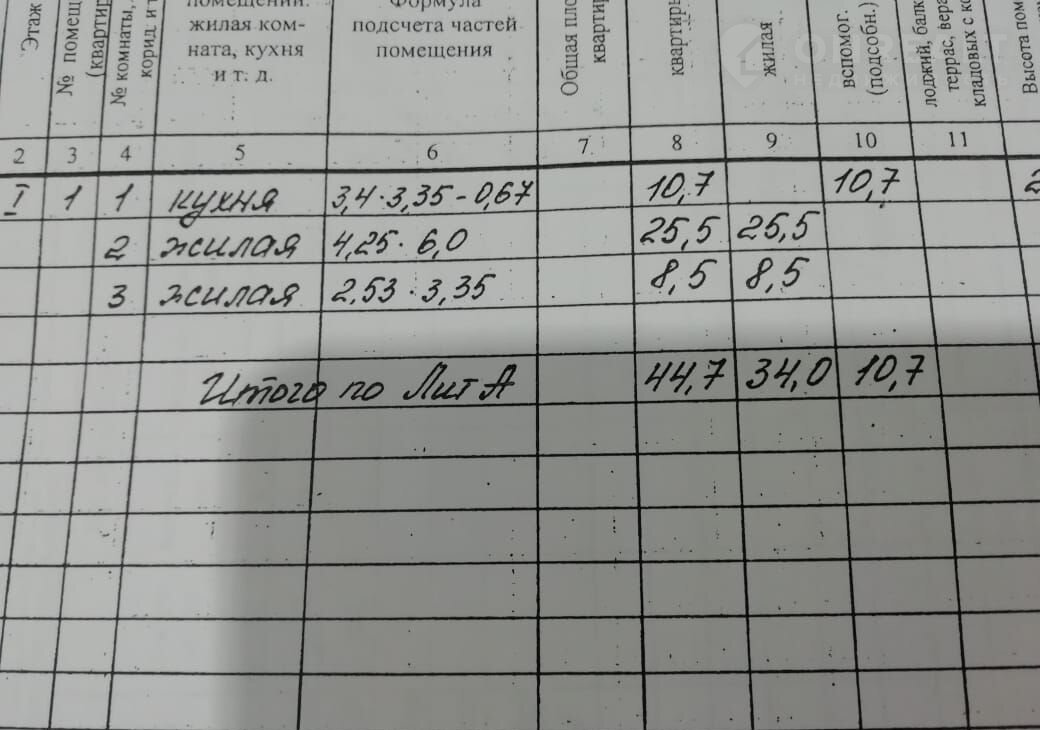 Этаж
№ помещ
(квартир
№ комнаты,
корид. и т
помещений:
жилая ком-
ната, кухня
и т. д.
Формула
подсчета частей
помещения
Общая пло
квартир
квартиры
жилая
вспомог.
(подсобн.)
лоджий, балк
террас, вера
кладовых с ко
Высота пом
2 3 4 5 6 7 8 9 10 11
I 1 1 кухня 3,4·3,35-0,67 10,7 10,7 2
2 жилая 4,25·6,0 25,5 25,5
3 жилая 2,53·3,35 8,5 8,5
Итого по Лит А 44,7 34,0 10,7